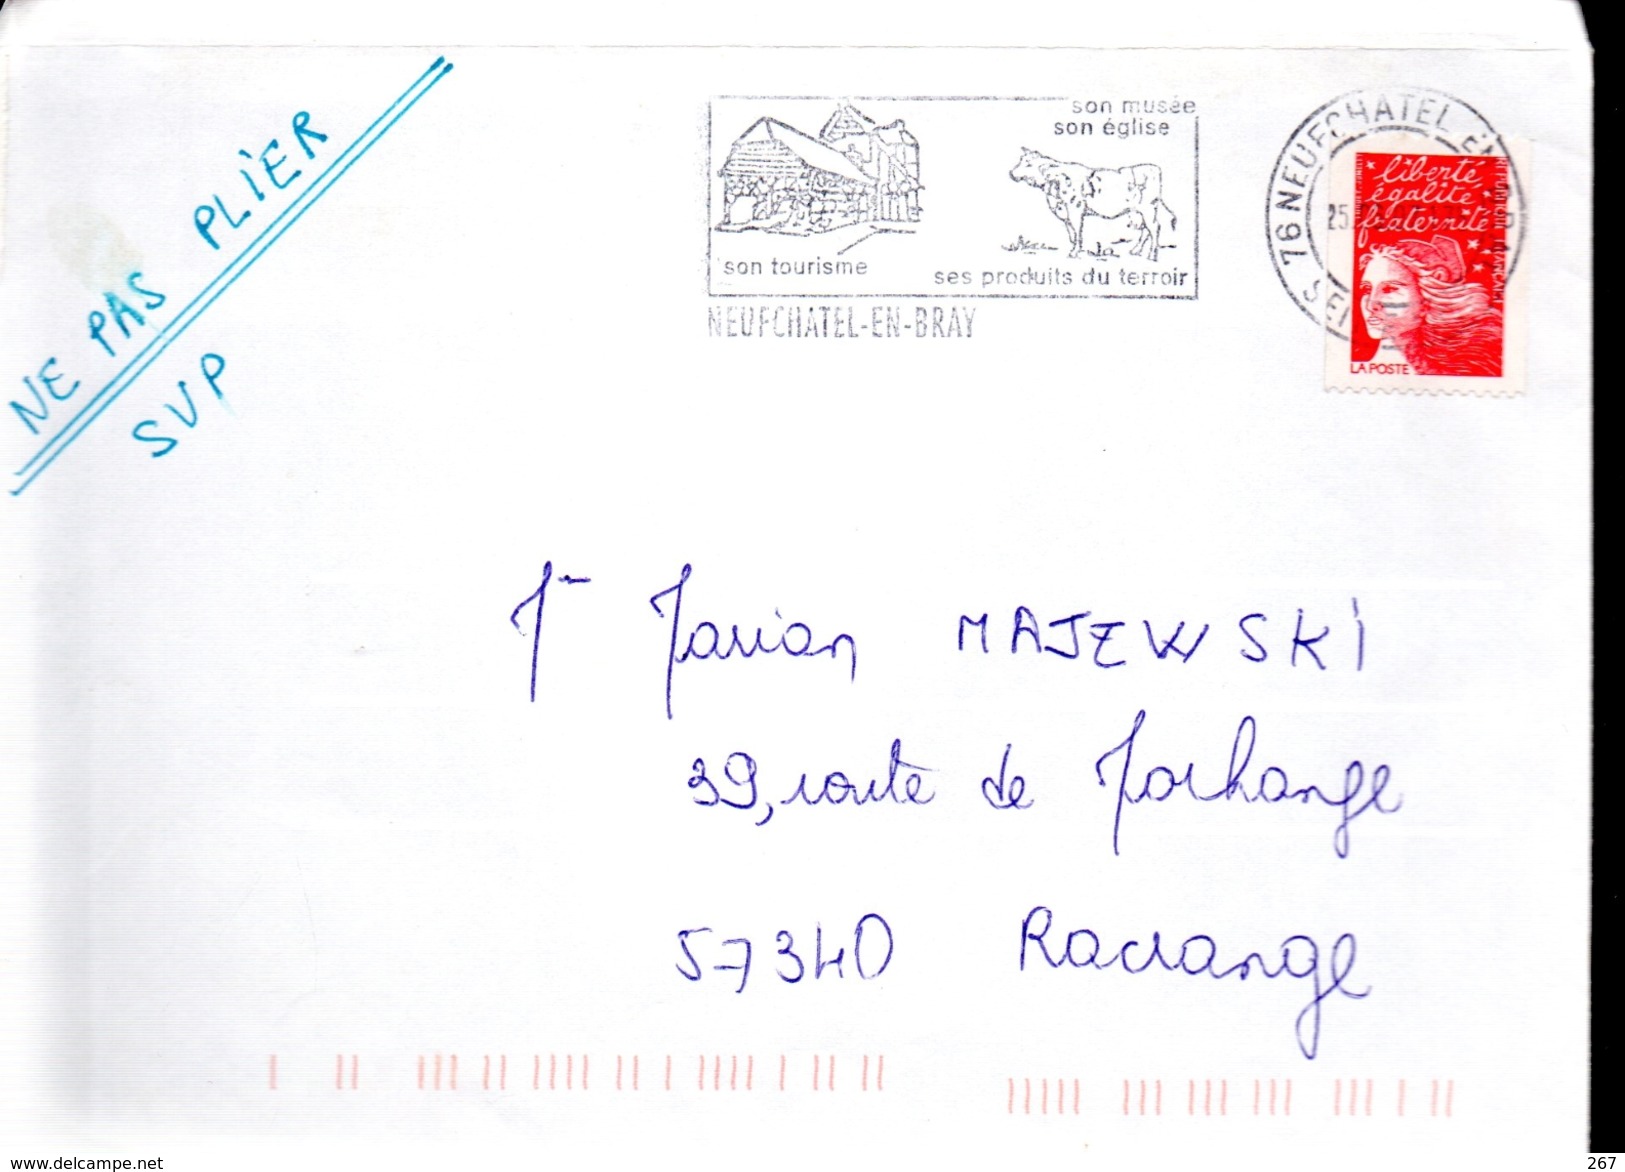 NE PAS PLIER
SVP
son musée
son église
son tourisme
ses produits du terroir
NEUFCHATEL-EN-BRAY
76 NEUFCHATEL EN
25
liberté
égalité
fraternité
LA POSTE
Mr Marian MAJEWSKI
39, route de Morhange
57340 Racrange
www.delcampe.net
267